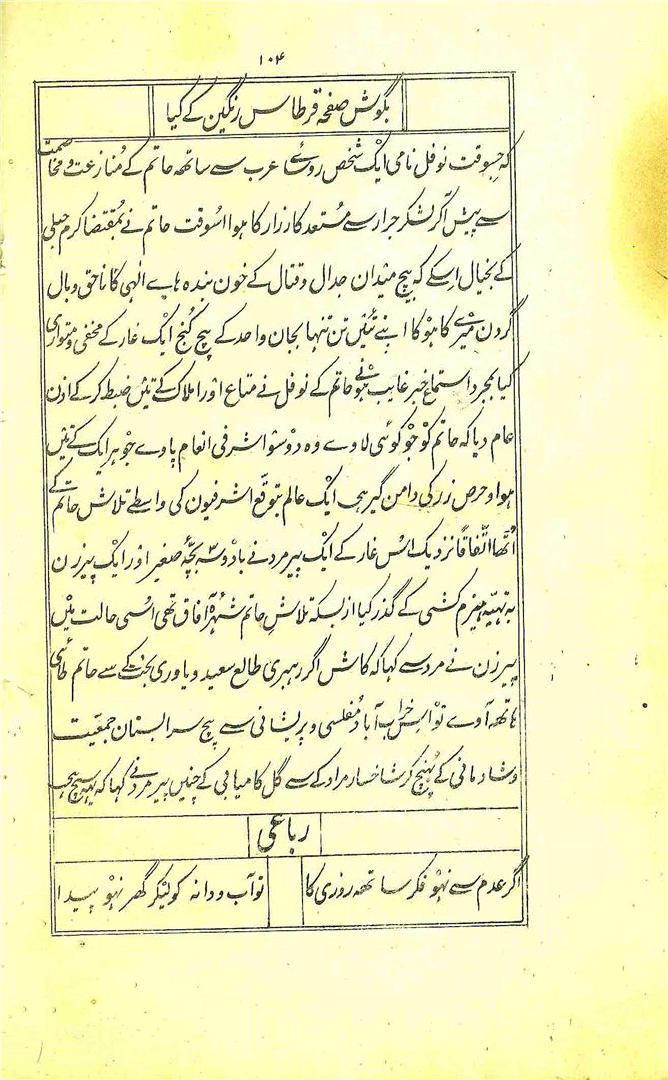 ۱۰۴
بگوش صفحہ قرطاس رنگین کے کیا
کہ جسوقت نوفل نامی ایک شخص روسائے عرب سے ساتھ حاتم کے منازعت و مخاصمت
سے پیش آکر لشکر جرار سے مستعد کارزار کا ہوا اسوقت حاتم نے بمقتضا کرم جبلی
کے بخیال اسکے کہ بیچ میدان جدال و قتال کے خون بندہ ہاے الٰہی کا ناحق وبال
گردن میرے کا ہوگا اپنے تئیں تن تنہا بجان واحد کے بیچ کنج ایک غار کے مخفی و متواری
کیا بمجرد استماع خبر غایب ہونے حاتم کے نوفل نے متاع اور املاک کے تئیں ضبط کرکے اذن
عام دیا کہ حاتم کو جو کوئی لاوے وہ دوسو اشرفی انعام پاوے جو ہر ایک کے تئیں
ہوا و حرص زر کی دامن گیر ہی ایک عالم بتوقع اشرفیون کی واسطے تلاش حاتم کے
اُٹھا اتّفاقاً نزدیک اس غار کے ایک پیر مرد نے با دو سہ بچّہ صغیر اور ایک پیرزن
بہ تہیّہ ہیزم کشی کے گذر کیا از بسکہ تلاش حاتم شہرہ آفاق تھی اسی حالت میں
پیرزن نے مرد سے کہا کہ کاش اگر رہبری طالع سعید و یاوری بخت کے سے حاتم طائی
ہاتھ آوے تو اس خراب آباد مفلسی و پریشانی سے بیچ سرابستان جمعیت
و شادمانی کے پہنچ کر شاخسار مراد کے سے گل کامیابی کے چنیں پیر مرد نے کہا کہ یہہ سچ ہے
رباعی
اگر عدم سے نہو فکر ساتھہ روزی کا تو آب و دانہ کو لیکر گھر نہو پیدا